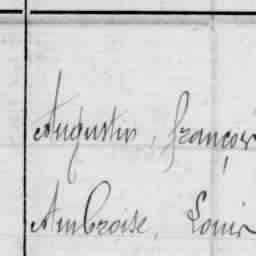 Augustin, françois
Ambroise, Louis